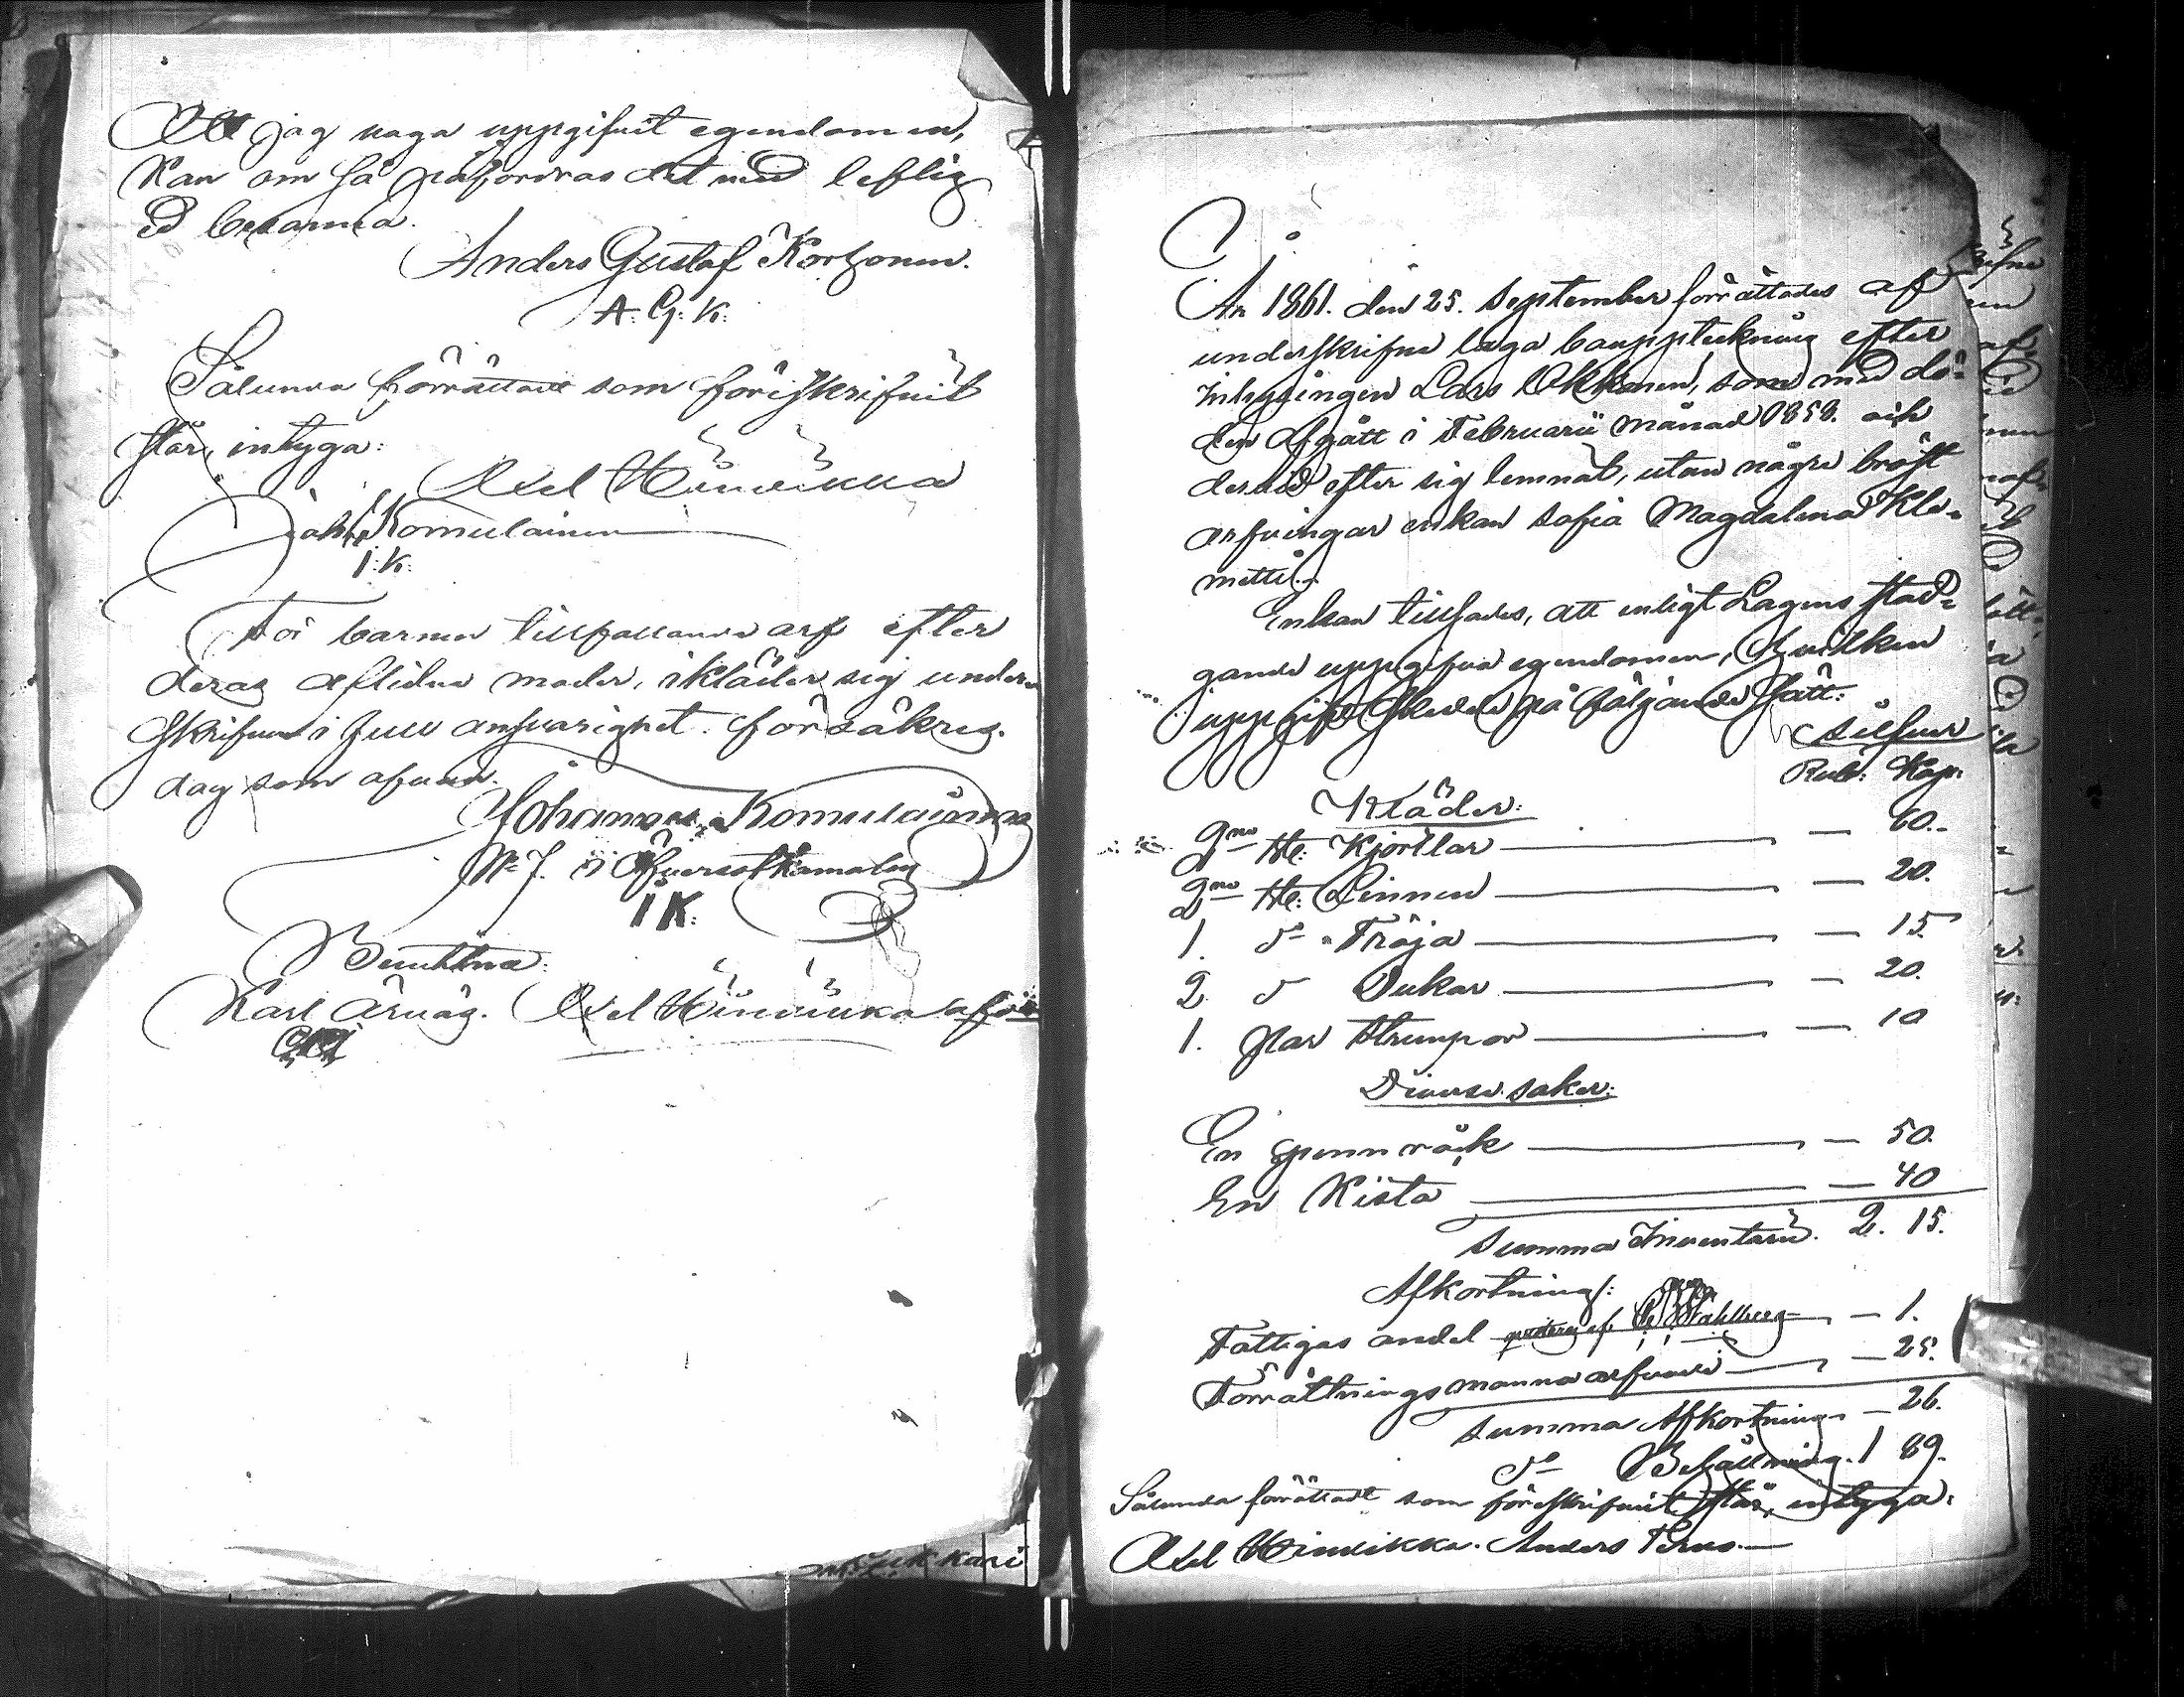 Att jag noga uppgifvit egendomen,
Kan om så påfordras det med liflig
ed besanna.
Anders Gustaf Korhonen.
A. G. K.
Sålunda förrättadt som föreskrifvit
står, intyga:
Axel Hinvikka
Joh. Komulainen
I. K.
För barnen tillfallande arf efter
deras aflidna moder, ikläder sig under-
skrifven i full ansvarighet. försäkras.
dag som ofvan.
Johannes Komulainen
I K.
Bevittna:
Karl Ärväs. Axel Hinvikka
År 1861. den 25. September förrättades af
underskrifne laga bouppteckning efter
Inhysingen Lars Okkonen, som med dö-
den afgått i Februarii månad 1858. och
dervid efter sig lemnat, utan några bröst
arfvingar enkan Sofia Magdalena Kle-
metti.
Enkan tillsades, att enligt Lagens stad-
gande uppgifva egendomen, hvilken
uppgift skedde på följande sätt:
Silfver
Rub: Kop:
Kläder:
2ne st: Kjortlar — 60.
2ne st: Linnen — 20.
1. do Tröja — 15
2 do Dukar — 20.
1. par Strumpor — 10
Diverse saker:
En spinnråck — 50.
En Kista — 40
Summa Inventarii. 2. 15.
Afkortning:
Fattigas andel — 1.
Förrättningsmanna arfvode — 25.
Summa Afkortning — 26.
do Behållning. 1 89.
Sålunda förrättadt som föreskrifvit står, intyga:
Axel Hinvikka. Anders